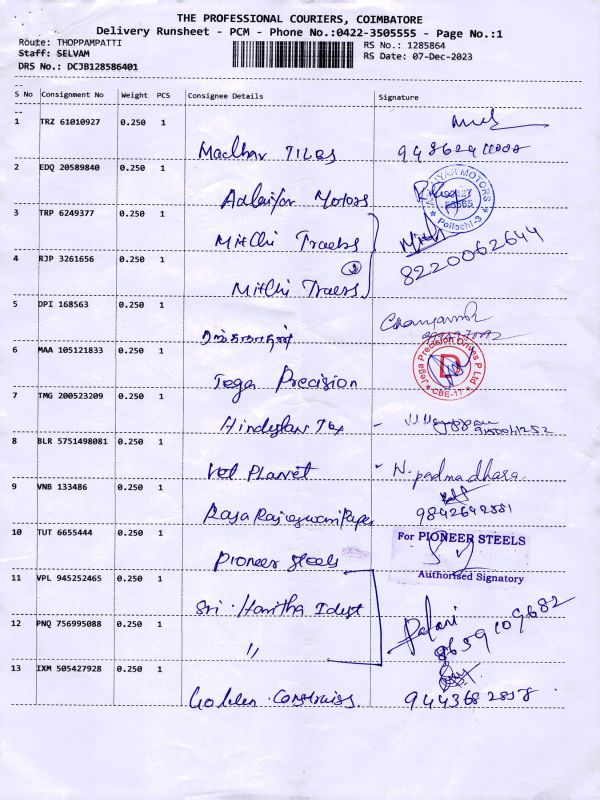 THE PROFESSIONAL COURIERS, COIMBATORE
Delivery Runsheet - PCM - Phone No.:0422-3505555 - Page No.:1
Route: THOPPAMPATTI
RS No.: 1285864
Staff: SELVAM
RS Date: 07-Dec-2023
DRS No.: DCJB128586401
S No Consignment No Weight PCS Consignee Details Signature
1 TRZ 61010927 0.250 1
Madhav Tiles
2 EDQ 20589840 0.250 1
Motors
MOTORS
Pollachi-3
3 TRP 6249377 0.250 1
Mithi Traess
4 RJP 3261656 0.250 1
8220062644
Mithi Traess
2
5 DPI 168563 0.250 1
6 MAA 105121833 0.250 1
Tega Precision
Jega Precision Drives P Ltd
D
CBE-17
7 TMG 200523209 0.250 1
Hindustan Tex
8 BLR 5751498081 0.250 1
Vel Planet - N. padmadhara
9 VNB 133486 0.250 1
Raja Rajeswari Paper
9842642881
10 TUT 6655444 0.250 1
For PIONEER STEELS
Pioneer Steels
Authorised Signatory
11 VPL 945252465 0.250 1
Sri. Haritha Idust
12 PNQ 756995088 0.250 1
Palani
8659109682
"
13 IXM 505427928 0.250 1
Golden
9443682858